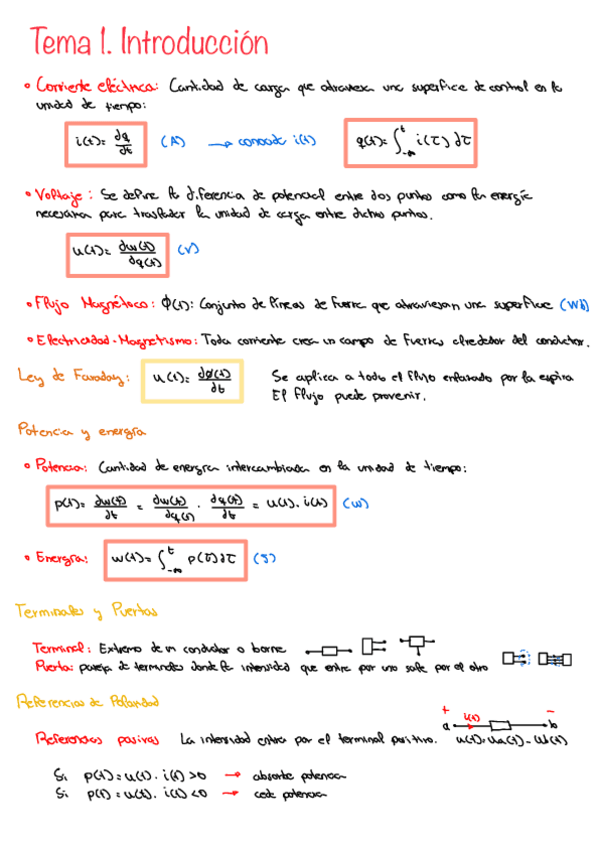 Tema 1. Introducción
• Corriente eléctrica: Cantidad de carga que atraviesa una superficie de control en la
unidad de tiempo:
i(t)= dq/dt (A) → conocida i(t) q(t)= ∫_{-∞}^{t} i(τ) dτ
• Voltaje: Se define la diferencia de potencial entre dos puntos como la energía
necesaria para trasladar la unidad de carga entre dichos puntos.
u(t)= dw(t)/dq(t) (V)
• Flujo Magnético: Φ(t): Conjunto de líneas de fuerza que atraviesan una superficie (Wb)
• Electricidad-Magnetismo: Toda corriente crea un campo de fuerzas alrededor del conductor.
Ley de Faraday: u(t)= dΦ(t)/dt Se aplica a todo el flujo enlazado por la espira
El flujo puede provenir.
Potencia y energía
• Potencia: Cantidad de energía intercambiada en la unidad de tiempo:
p(t)= dw(t)/dt = dw(t)/dq(t) · dq(t)/dt = u(t). i(t) (W)
• Energía: w(t)= ∫_{-∞}^{t} p(τ)dτ (J)
Terminales y Puertas
Terminal: Extremo de un conductor o borne
Puerta: pareja de terminales donde la intensidad que entre por uno sale por el otro
Referencias de Polaridad
Referencias pasivas La intensidad entra por el terminal positivo. + a i(t) b - u(t)=ua(t)-ub(t)
Si p(t)=u(t). i(t) >0 → absorbe potencia
Si p(t)=u(t). i(t) <0 → cede potencia